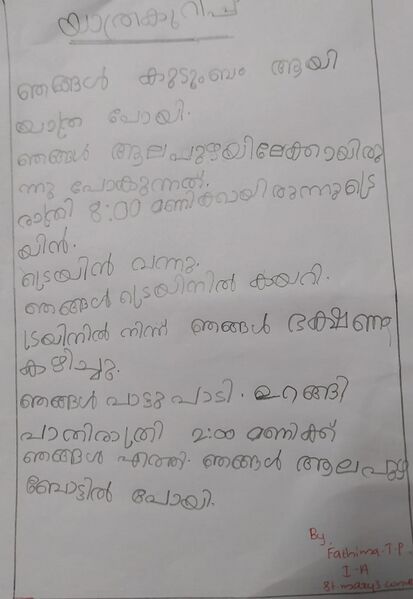 യാത്രകുറിപ്പ്
ഞങ്ങൾ കുടുംബം ആയി
യാത്ര പോയി.
ഞങ്ങൾ ആലപ്പുഴയിലേക്കായിരു
ന്നു പോകുന്നത്.
രാത്രി 8:00 മണിക്കായിരുന്നു ട്രെ
യിൻ.
ട്രെയിൻ വന്നു.
ഞങ്ങൾ ട്രെയിനിൽ കയറി.
ട്രെയിനിൽ നിന്ന് ഞങ്ങൾ ഭക്ഷണം
കഴിച്ചു.
ഞങ്ങൾ പാട്ടു പാടി. ഉറങ്ങി
പാതിരാത്രി 2:00 മണിക്ക്
ഞങ്ങൾ എത്തി. ഞങ്ങൾ ആലപ്പുഴ
ബോട്ടിൽ പോയി.
By,
Fathima.T.P.
I-A
St.mary's